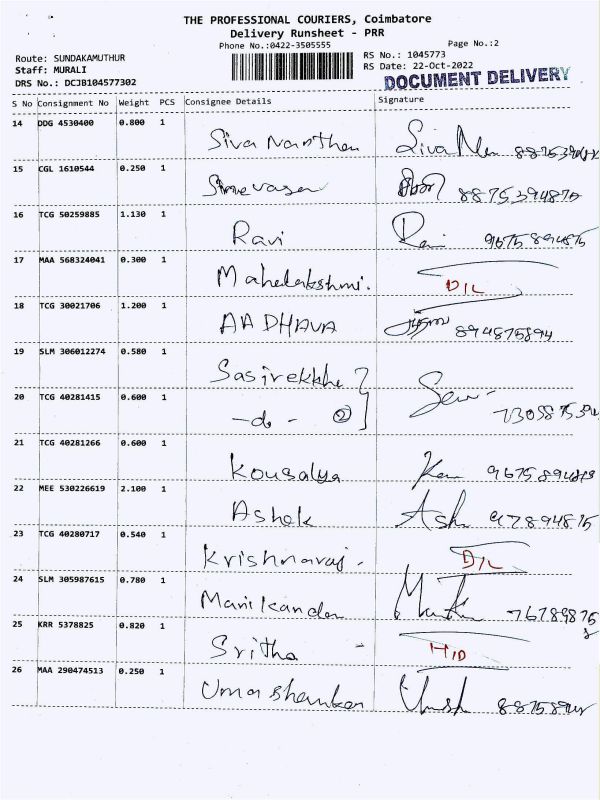 THE PROFESSIONAL COURIERS, Coimbatore
Delivery Runsheet - PRR
Phone No.:0422-3505555
Page No.:2
Route: SUNDAKAMUTHUR
RS No.: 1045773
Staff: MURALI
RS Date: 22-Oct-2022
DRS No.: DCJB104577302
DOCUMENT DELIVERY
S No Consignment No Weight PCS Consignee Details Signature
14 DDG 4530400 0.800 1
15 CGL 1610544 0.250 1
8875394870
16 TCG 50259885 1.130 1 Ravi Ravi 9675894875
17 MAA 568324041 0.300 1 Mahalakshmi. D/L
18 TCG 30021706 1.200 1 AADHAVA 894875894
19 SLM 306012274 0.580 1 Sasirekkha
20 TCG 40281415 0.600 1 -do- ②
21 TCG 40281266 0.600 1 Kousalya
22 MEE 530226619 2.100 1 Ashok Ash
23 TCG 40280717 0.540 1 Krishnaraj. D/L
24 SLM 305987615 0.780 1 Manikandan
25 KRR 5378825 0.820 1 Sritha - H/D
26 MAA 290474513 0.250 1 Umashankar